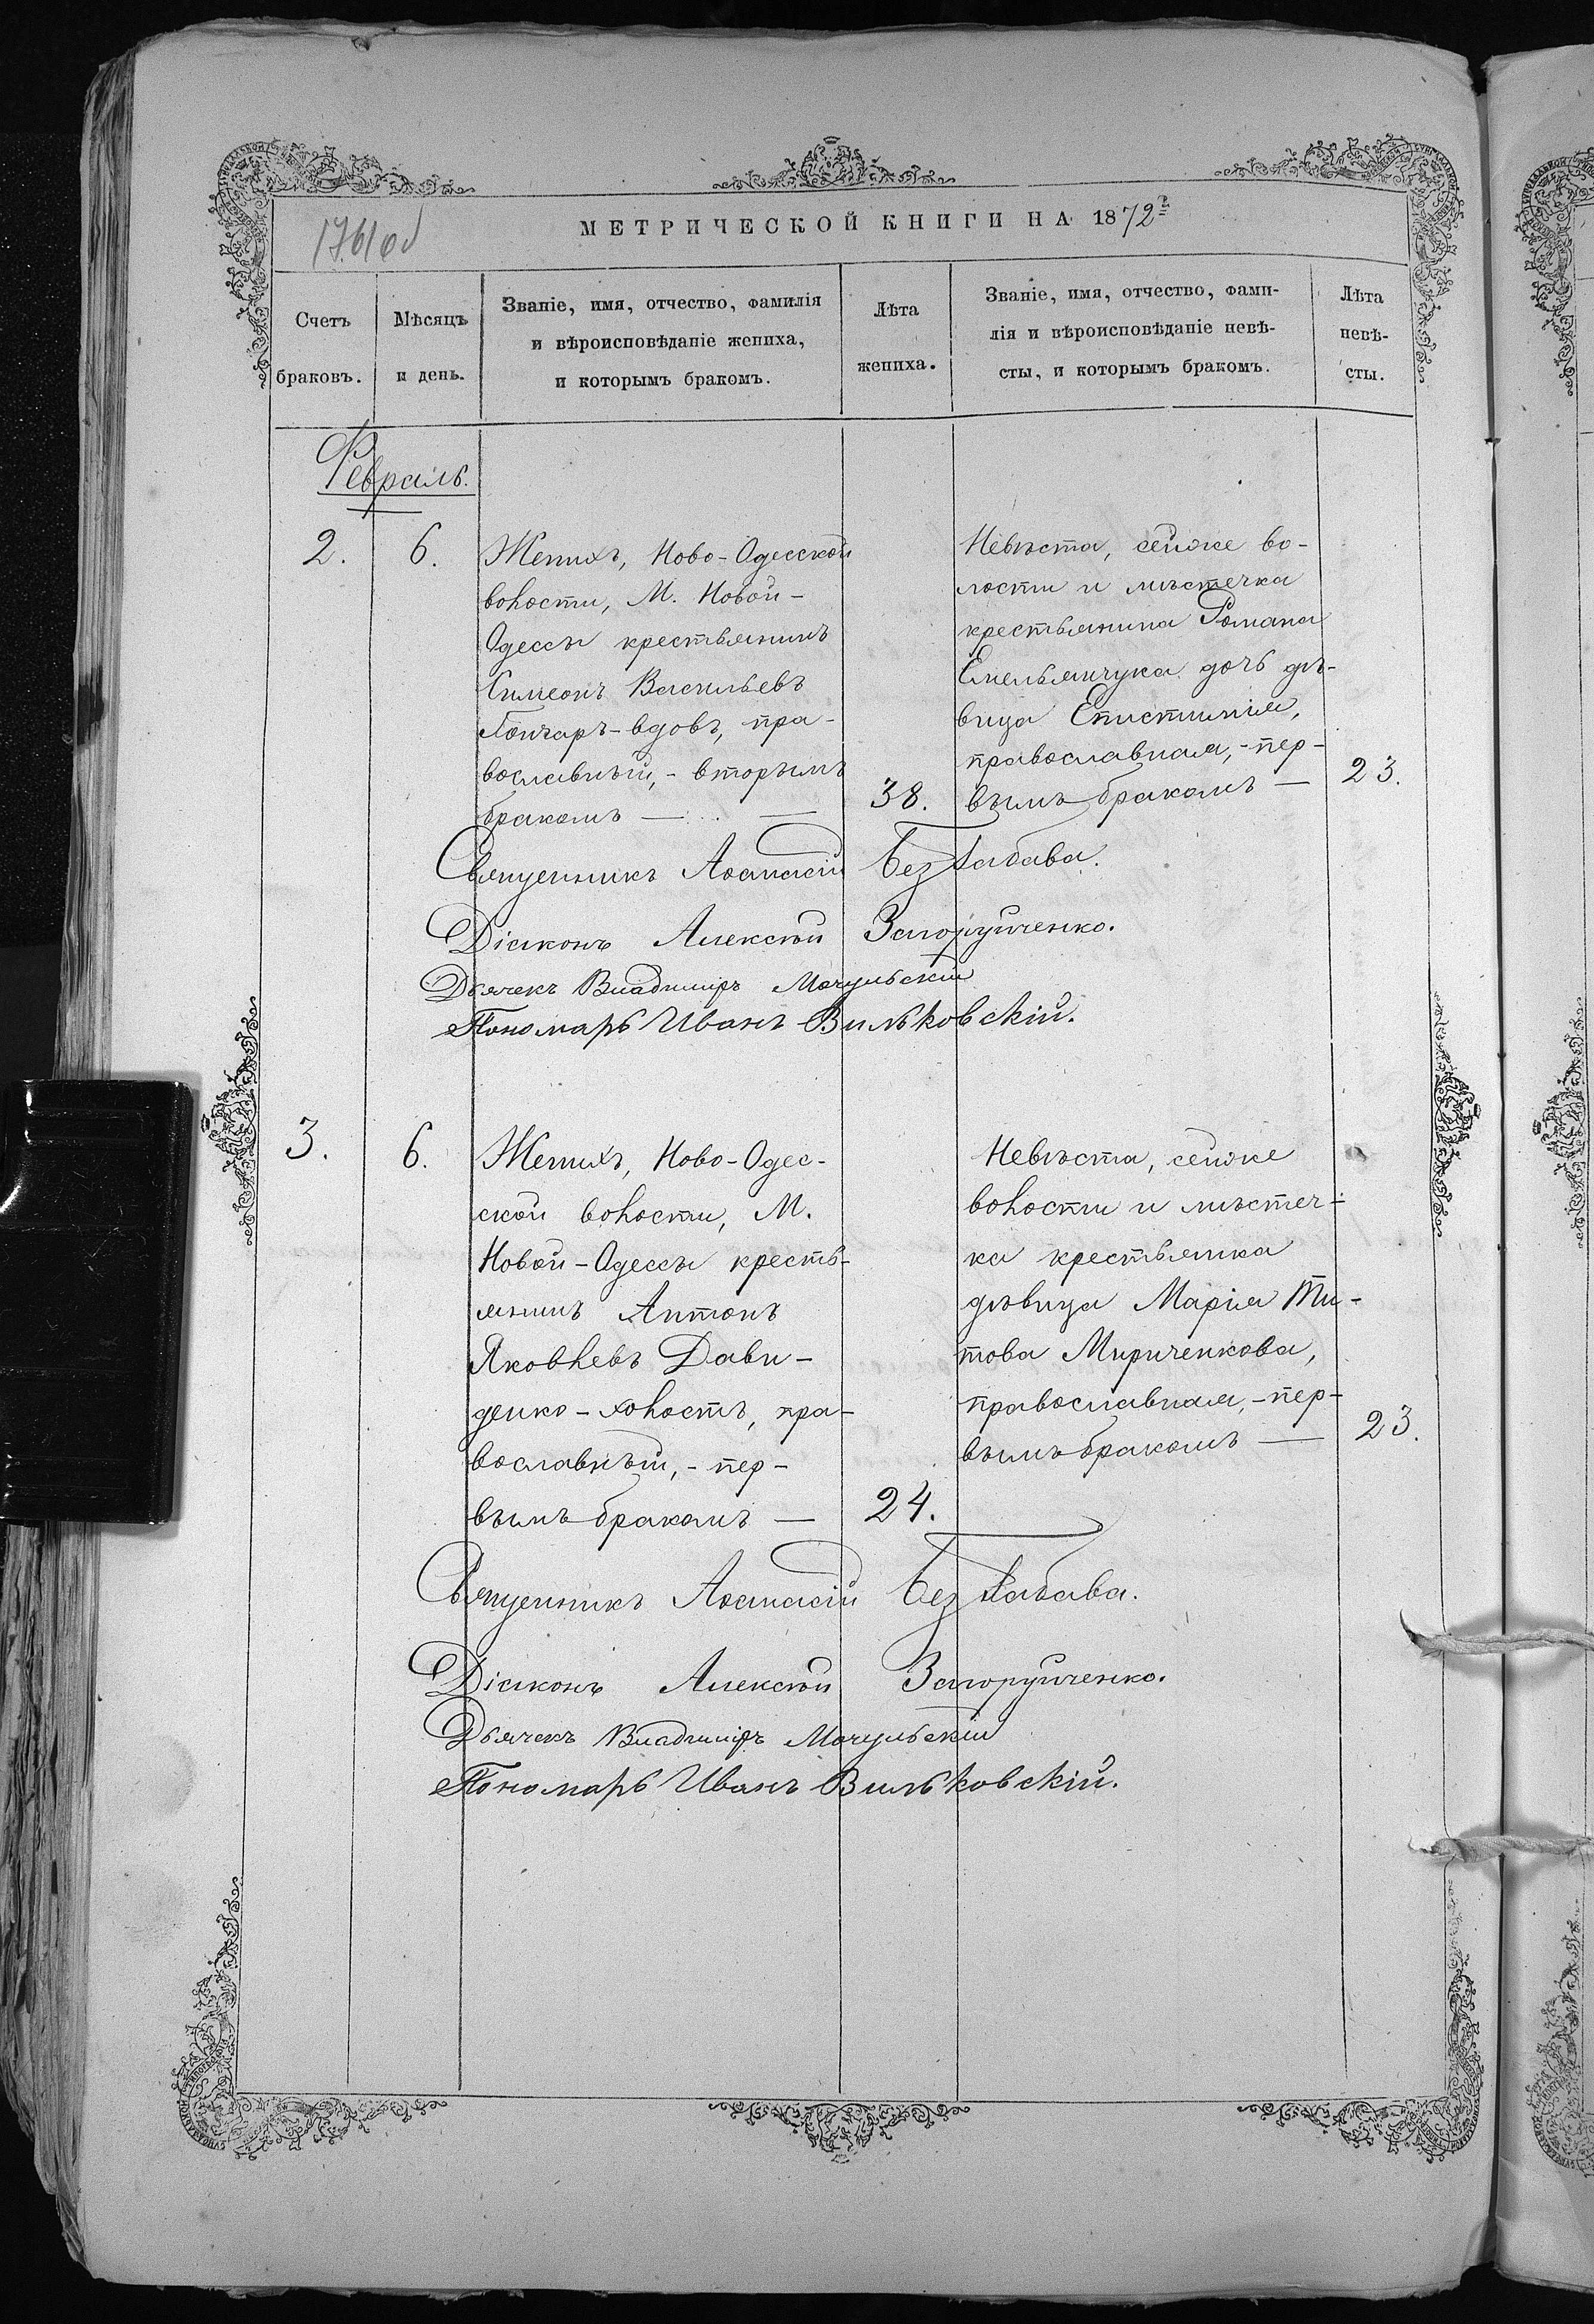 1761об
МЕТРИЧЕСКОЙ КНИГИ НА 1872й
Счетъ браковъ.
Мѣсяцъ и день.
Званіе, имя, отчество, фамилія
и вѣроисповѣданіе жениха,
и которымъ бракомъ.
Лѣта жениха.
Званіе, имя, отчество, фами-
лія и вѣроисповѣданіе невѣ-
сты, и которымъ бракомъ.
Лѣта невѣ-
сты.
Февраль.
2.
6.
Женихъ, Ново-Одесской
волости, М. Новой-
Одессы крестьянинъ
Симеонъ Васильевъ
Гончаръ-вдовъ, пра-
вославный,- вторымъ
бракомъ —
38.
Невѣста, сейже во-
лости и мѣстечка
крестьянина Романа
Емельянчука дочь дѣ-
вица Епистимія,
православная,-пер-
вымъ бракомъ —
23.
Священникъ Аѳанасій Безлабава.
Діаконъ Алексѣй
Дьячекъ Владиміръ Мочульскій
Пономарь Иванъ Вильковскій.
3.
6.
Женихъ, Ново-Одес-
ской волости, М.
Новой-Одессы кресть-
янинъ Антонъ
Яковлевъ Дави-
денко-холостъ, пра-
вославный,- пер-
вымъ бракомъ —
24.
Невѣста, сейже
волости и мѣстеч-
ка крестьянка
дѣвица Марія Ти-
това Мириченкова,
православная,-пер-
вымъ бракомъ —
23.
Священникъ Аѳанасій Безлабава.
Діаконъ Алексѣй
Дьячекъ Владиміръ Мочульскій
Пономарь Иванъ Вильковскій.